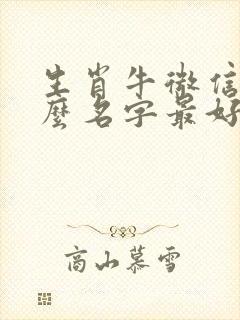 生肖牛微信
麼名字最好
高山慕雪